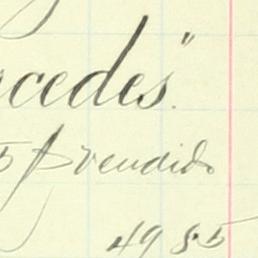 rcedes".
5 p vendido
49 85